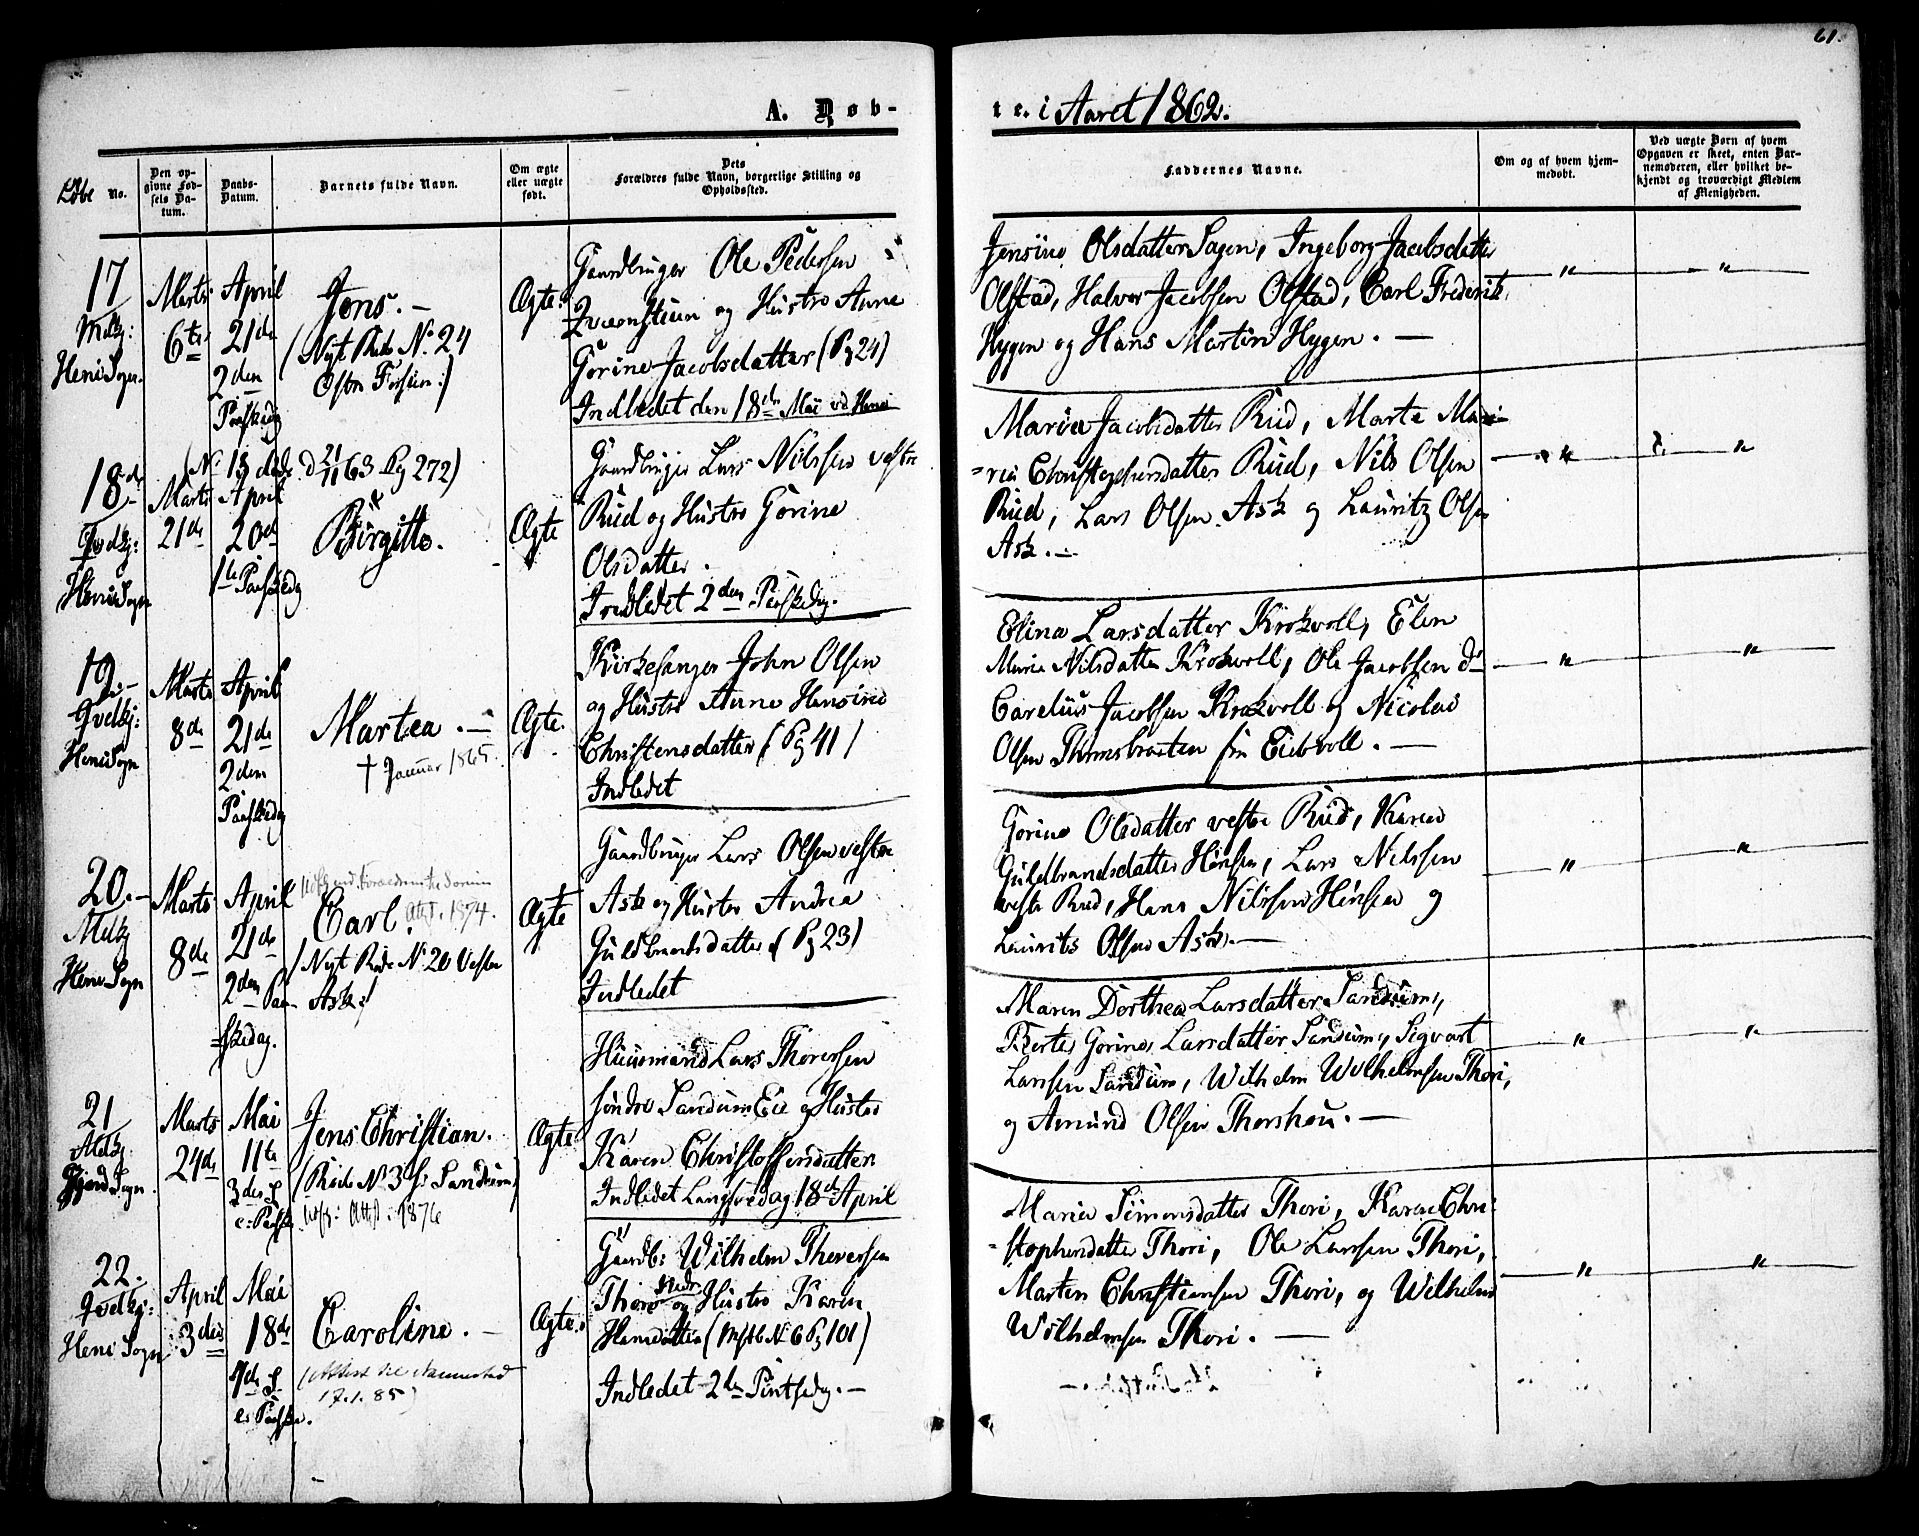 61.
A. Døb-
te. i Aaret 1862.
Løbe No.
Den op-
givne Fød-
sels Da-
tum.
Daabs-
Datum.
Barnets fulde Navn.
Om ægte
eller uægte
født.
Dets
Forældres fulde Navn, borgerlige Stilling og
Opholdssted.
Faddernes Navne.
Om og af hvem hjem-
medøbt.
Ved uægte Børn af hvem
Opgaven er skeet, enten Bar-
nemoderen, eller hvilket be-
kjendt og troværdigt Medlem
af Menigheden.
17
Heni Sogn.
Marts
6te
April
21de
2den
Paaskedg
Jens. —
(Nyt Rode No. 24
Ægte.
Gaardbruger Ole Pedersen
og Hustro Anne
Gorine Jacobsdatter (Pg 24)
Indledet den 18de Mai ved Heni
Jensine Olsdatter Sagen, Ingeborg Jacobsdatter
Olstad, Halvor Jacobsen Olstad, Carl Frederik
Hygen og Hans Martin Hygen. —
" "
18de
Heni Sogn
(No. 13 døde d 21/11 63 Pg 272)
Marts
21de
April
20de
1te Paaskedg
Birgitte.
Ægte
Gaardbruger Lars Nilssen vestre
Rud og Hustro Gorine
Olsdatter.
Indledet 2den Paaskedg.
Maria Jacobsdatter Rud, Marte Ma-
=ria Christophersdatter Rud, Nils Olsen
Rud, Lars Olsen Ask og Lauritz Olsen
Ask. —
" "
19. —
Qvelkj:
Heni Sogn
Marts
8de
April
21de
2den
Paaskedg
Martea. —
† Januar 1865.
Ægte.
Kirkesanger John Olsen
og Hustro Anne Hansine
Christensdatter (Pg 41)
Indledet
Elina Larsdatter Krokvoll, Elen
Maria Nilsdatter Krokvoll, Ole Jacobsen do
Carelius Jacobsen Krokvoll og Nicolai
Olsen fra Eidsvoll. —
" "
20. —
Mlkj
Heni Sogn
Marts
8de
April
21de
2den Paa-
=skedag.
Carl. Attst. 1874.
(Nyt Rode No. 20 Vestre
Ask)
Ægte
Gaardbruger Lars Olsen vestre
Ask og Hustro Andrea
Guldbrandsdatter (Pg 23)
Indledet
Gorine Olsdatter vestre Rud, Karen
Guldbrandsdatter Hønsen, Lars Nilssen
vestre Rud, Hans Nilssen Hønsen og
Laurits Olsen Ask. —
" "
21
Mlkj.
Sogn.
Marts
24de
Mai
11te
3die S.
e: Paaske
Jens Christian.
(Rode No 3 S: Sandum)
Attst. 1876
Ægte
Huusmand Lars Thoressen
søndre Sandum Eie og Hustro
Karen Christoffersdatter
Indledet Langfredag 18de April
Maren Dorthea Larsdatter Sandum,
Berte Gorine Larsdatter Sandum, Sigvart
Larssen Sandum, Wilhelm Wilhelmsen Thori,
og Amund Olsen Thorshou. —
" "
22.
Qvelkj:
Heni Sogn
April
3die
Mai
18de
4de S.
e: Paaske.
Caroline. —
(Attest til Nannestad
17.1.85)
Ægte.
Gaardb: Wilhelm Thoressen
Thori nedre og Hustro Karen
Hansdatter (Mstb No 6 Pg 101)
Indledet 2den Pintsedg. —
Maria Simensdatter Thori, Karen Chri-
=stophersdatter Thori, Ole Larssen Thori,
Marten Christiansen Thori, og Wilhelm
Wilhelmsen Thori. —
" "